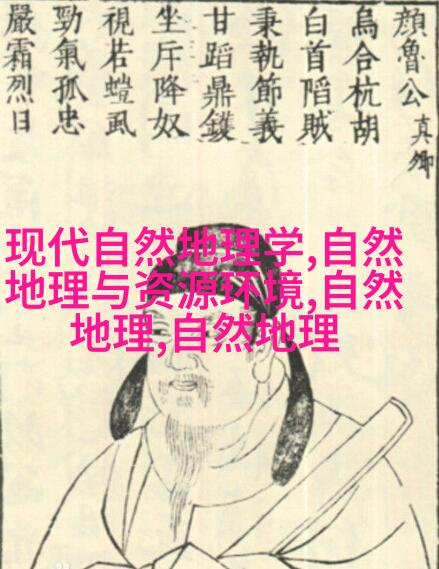 顔魯公真卿
烏合杭胡
白首陷賊
秉執節義
甘蹈鼎鑊
坐斥降奴
視若螘虱
勁氣孤忠
嚴霜烈日
现代自然地理学,自然
地理与资源环境,自然
地理,自然地理